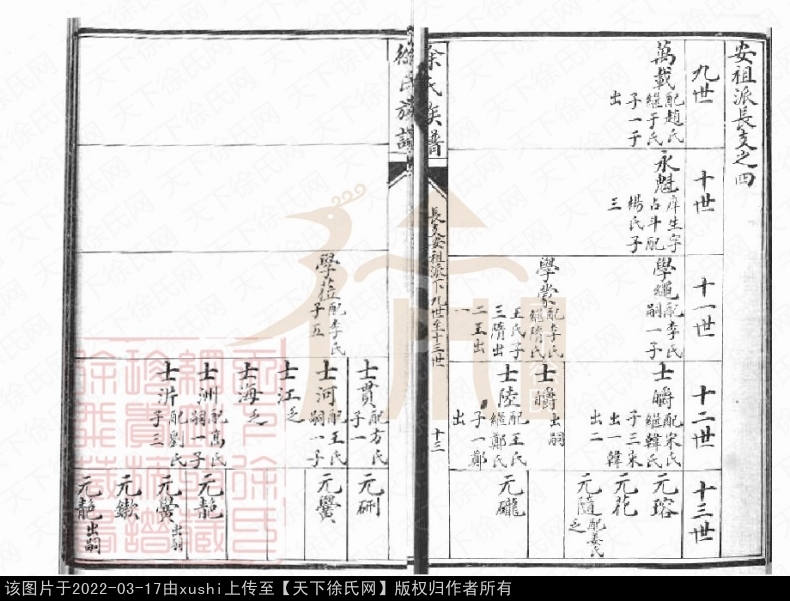 安祖派長支之四
九世
萬載
配趙氏
繼于氏
子一于
出
十世
永魁
庠生字
占斗配
楊氏子
三
十一世
學繩
配李氏
嗣一子
學蒙
配李氏
繼隋氏
王氏子
三隋出
二王出
一
十二世
士皭
配宋氏
繼韓氏
子三宋
出一韓
出二
士皭
出嗣
士陸
配王氏
繼鄭氏
子一鄭
出
十三世
元瑢
元花
元隨
配姜氏
乏
元礲
徐氏族譜
長支安祖派下九世至十三世
十三
學蒞
配李氏
子五
士貫
配方氏
子一
士河
配王氏
嗣一子
士江
乏
士海
乏
士洲
配高氏
嗣一子
士沂
配劉氏
子三
元硎
元黌
元龍
元黌
出嗣
元漱
元龍
出嗣
该图片于2022-03-17由xushi上传至【天下徐氏网】版权归作者所有